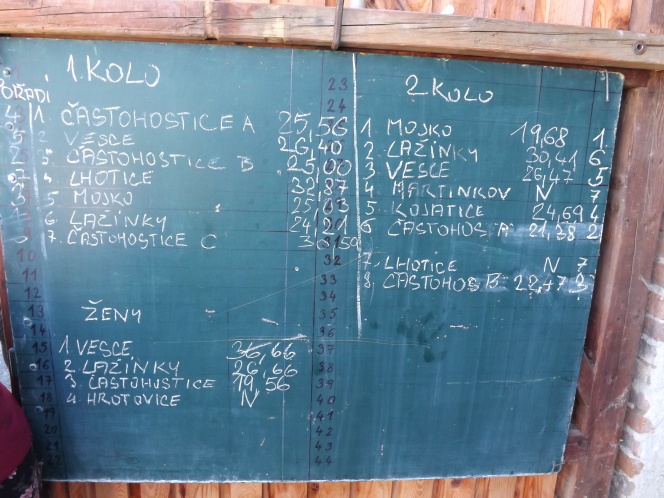 1. KOLO
POŘADÍ
4 1. ČASTOHOSTICE A 25,56
5 2. VESCE 26,40
2 3 ČASTOHOSTICE B 25,00
7 4 LHOTICE 32,87
3 5 MOJKO 25,03
1 6 LAŽÍNKY 24,21
7. ČASTOHOSTICE C
ŽENY
1. VESCE 36,66
2. LAŽÍNKY 26,66
3. ČASTOHOSTICE 19,56
4. HROTOVICE N
2 KOLO
1. MOJKO 19,68 1.
2. LAŽÍNKY 30,41 6
3 VESCE 26,47 5
4. MARTINKOV N 7
5. KOJATICE 24,69 4
6 ČASTOHOS A 21,38 2
7. LHOTICE N 7
8. ČASTOHOS B 22,77 3
10
11
12
13
14
15
16
17
18
19
20
21
22
23
24
32
33
34
35
36
37
38
39
40
41
42
43
44